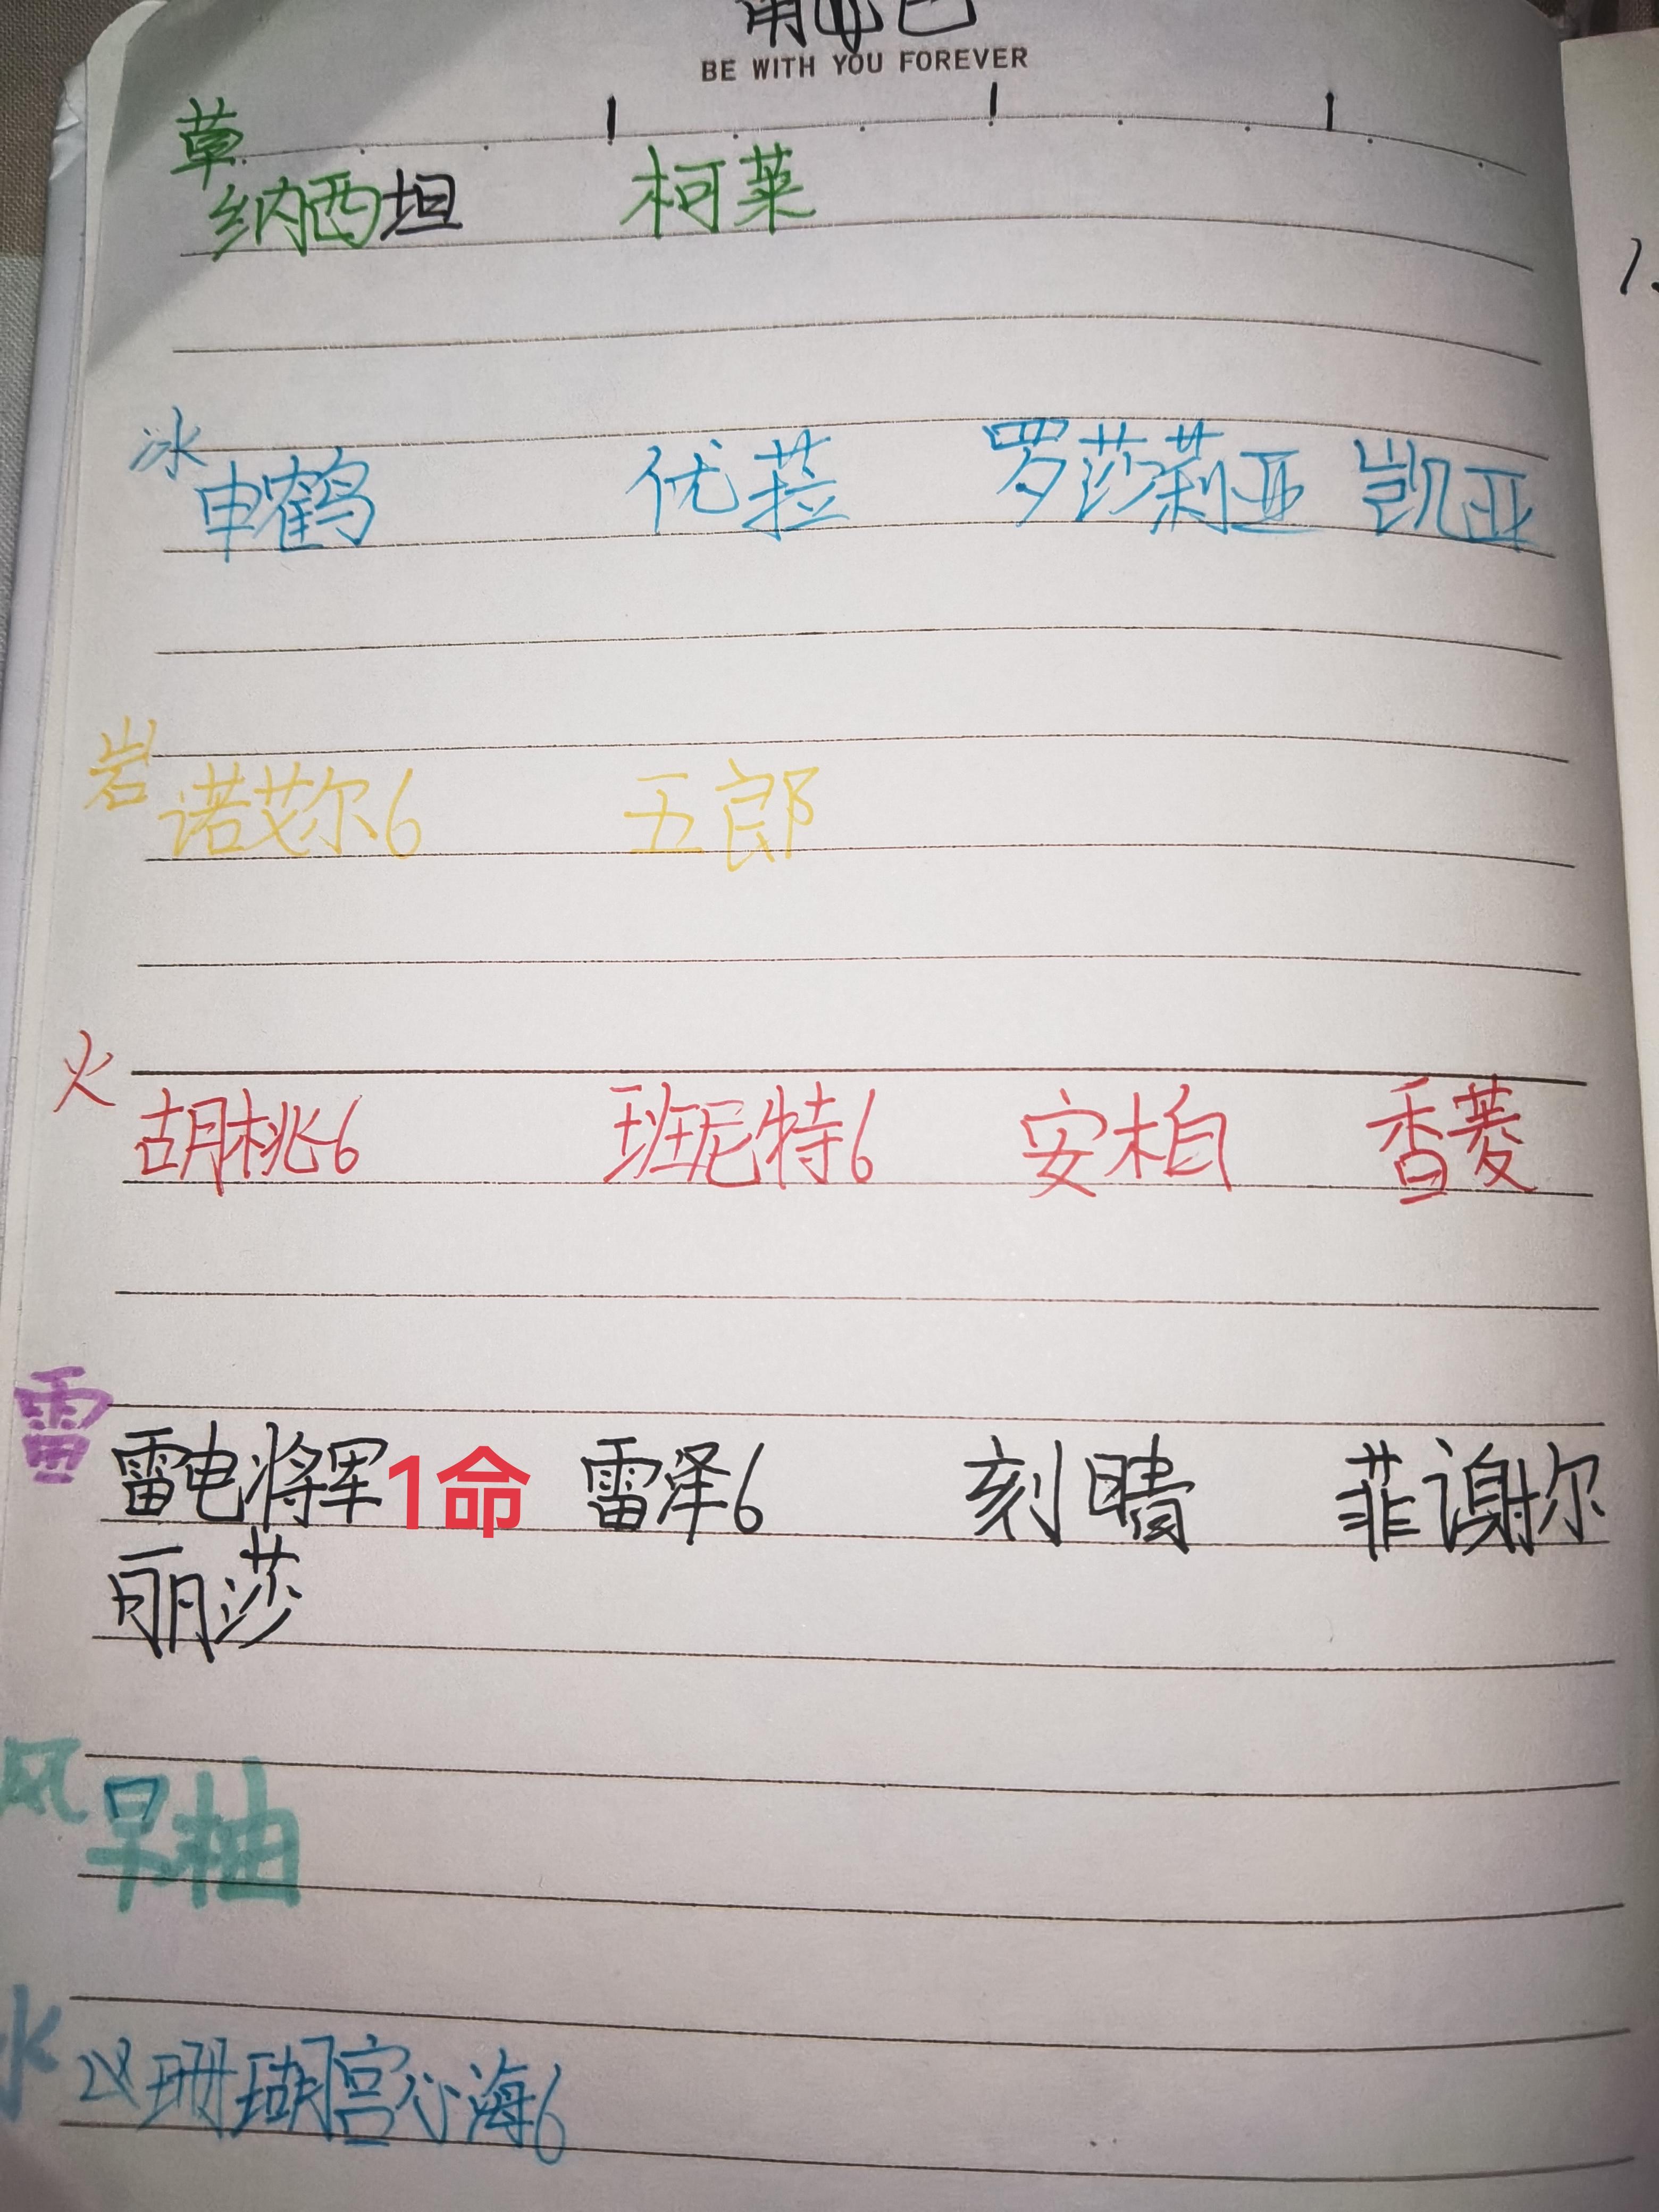 BE WITH YOU FOREVER
草
纳西坦 柯莱
冰
申鹤 优菈 罗莎莉亚 凯亚
岩
诺艾尔6 五郎
火
胡桃6 班尼特6 安柏 香菱
雷
雷电将军1命 雷泽6 刻晴 菲谢尔
丽莎
风
早柚
水
珊瑚宫心海6
1.